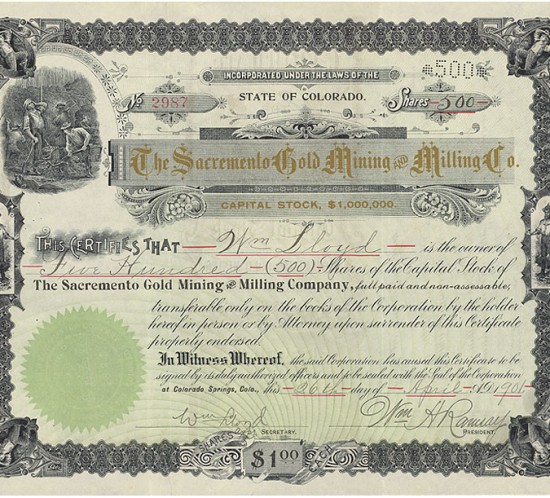 INCORPORATED UNDER THE LAWS OF THE
*500*
No. 2987
STATE OF COLORADO.
Shares - 500 -
The Sacremento Gold Mining AND Milling Co.
CAPITAL STOCK, $1,000,000.
THIS CERTIFIES THAT Wm Lloyd is the owner of
Five Hundred (500) Shares of the Capital Stock of
The Sacremento Gold Mining AND Milling Company, full paid and non-assessable;
transferable only on the books of the Corporation by the holder
hereof in person or by Attorney upon surrender of this Certificate
properly endorsed.
In Witness Whereof, the said Corporation has caused this Certificate to be
signed by its duly authorized officers and to be sealed with the Seal of the Corporation
at Colorado Springs, Colo., this 26th day of April A.D. 1901
Wm Lloyd
SECRETARY.
Wm A Ramsay
PRESIDENT.
SHARES $1.00 EACH